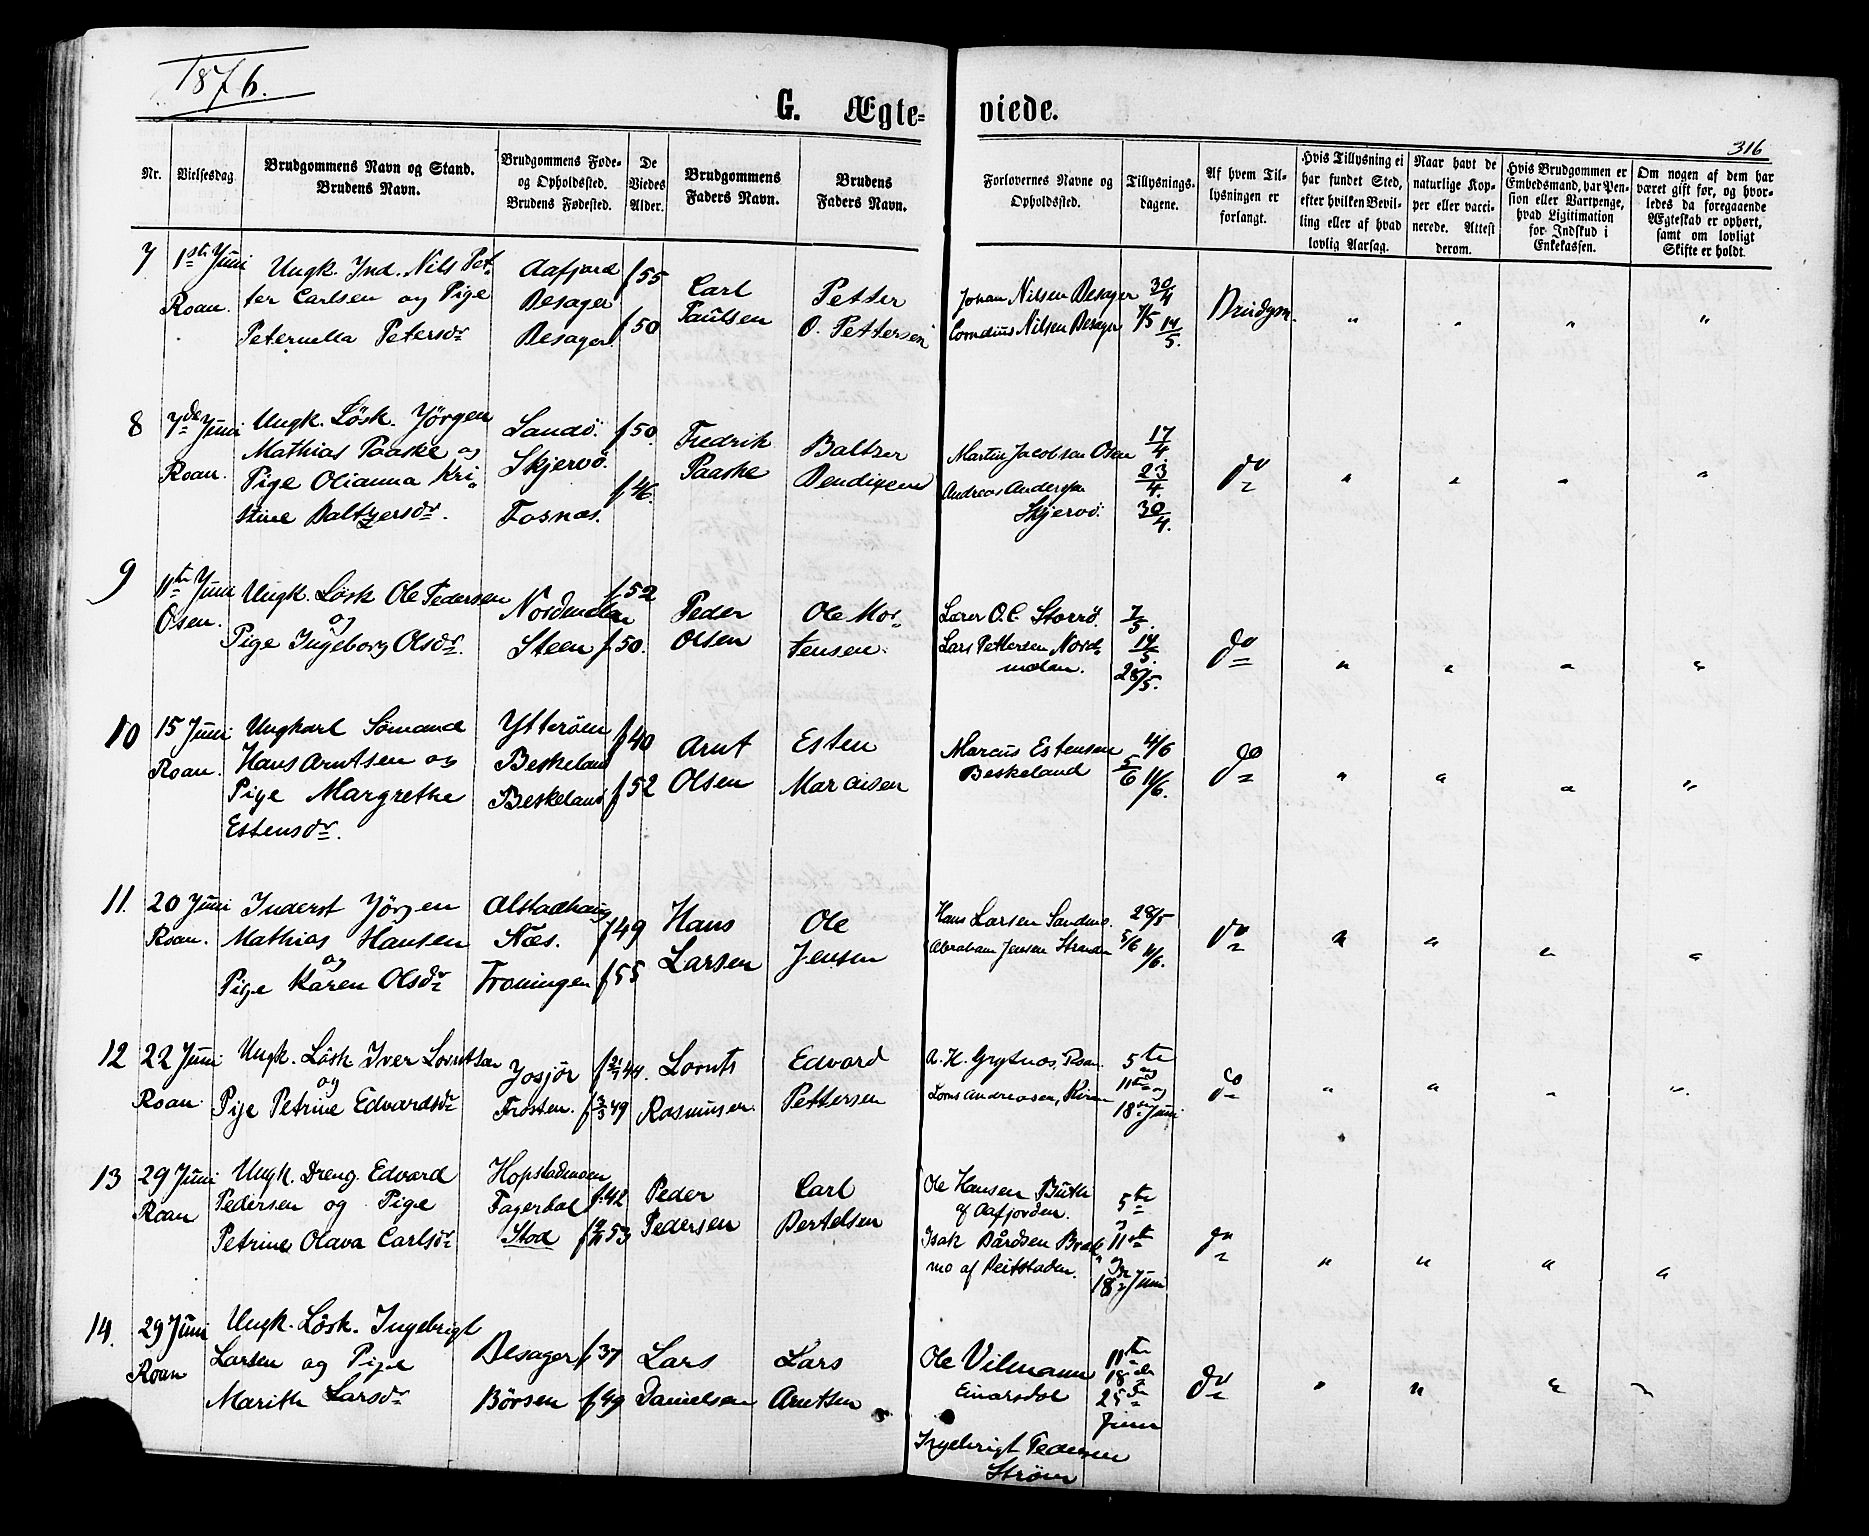 1876.
G. Ægte=
viede.
316
Nr.
Vielsesdag.
Brudgommens Navn og Stand.
Brudens Navn.
Brudgommens Føde-
og Opholdssted.
Brudens Fødested.
De
Viedes
Alder.
Brudgommens
Faders Navn.
Brudens
Faders Navn.
Forlovernes Navne og
Opholdssted.
Tillysnings-
dagene.
Af hvem Til-
lysningen er
forlangt.
Hvis Tillysning ei
har fundet Sted,
efter hvilken Bevil-
ling eller af hvad
lovlig Aarsag.
Naar havt de
naturlige Kop-
per eller vacci-
nerede. Attest
derom.
Hvis Brudgommen er
Embedsmand, har Pen-
sion eller Vartpenge,
hvad Ligitimation
for Indskud i
Enkekassen.
Om nogen af dem har
været gift før, og hvor-
ledes da foregaaende
Ægteskab er ophørt,
samt om lovligt
Skifte er holdt.
7
1ste Juni
Roan.
Ungk. Ind. Nils Pet-
ter Carlsen og Pige
Peternella Petersdr
Aafjord
Besager
Besager
f 55
f 50
Carl
Paulsen
Petter
O. Pettersen
Johan Nilsen Besager
Cornelius Nilsen Besager
30/4
7/5 14/5.
Brudgm.
" " " "
8
7de Juni
Roan.
Ungk. Løsk. Jørgen
Mathias Paaske og
Pige Olianna Kri-
stine Baltzersdr.
Sandø.
Skjervø.
Fosnæs.
f 50.
f 46.
Fredrik
Paaske
Baltzer
Bendixen
Martin Jacobsen Osen
Andreas Andersen
Skjervø.
17/4.
23/4.
30/4.
do
" " " "
9
11te Juni
Osen.
Ungk. Løsk Ole Pedersen
og
Pige Ingeborg Olsdr.
Nordmelan
Steen
f 52
f 50.
Peder
Olsen
Ole Mor-
tensen.
Lærer O. C. Storrø.
Lars Pettersen Nord-
melan.
7/5.
14/5.
28/5.
do
" " " "
10
15 Juni
Roan.
Ungkarl Sømand
Hans Arntsen og
Pige Margrethe
Estensdr.
Ytterøen
Beskeland
Beskeland
f 40
f 52
Arnt
Olsen
Esten
Marcusen
Marcus Estensen
Beskeland
4/6
5/6 11/6.
do
" " " "
11.
20 Juni
Roan.
Inderst Jørgen
Mathias Hansen
og
Pige Karen Olsdr
Alstadhaug
Næs.
f 49
f 55
Hans
Larsen
Ole
Jensen
Hans Larsen
Abraham Jensen Stranden
28/5
5/6 11/6.
do
" " " "
12
22 Juni
Roan.
Ungk. Løsk Iver Lorntsen
og
Pige Petrine Edvardsdr
Josjør
Frosten.
44.
49
Lornts
Rasmussen.
Edvard
Pettersen
A. H. Grytnæs, Roan.
Lorns Andreasen, Kiran
5te
og
11te og
18de Juni
do
" " " "
13
29 Juni
Roan
Ungk. Dreng. Edvard
Pedersen og Pige
Petrine Olava Carlsdr
Hopstadmoen
Fagerdal
Stod
f. 42
53
Peder
Pedersen
Carl
Bertelsen
Ole Hansen
af Aafjorden.
Isak Bårdsen
mo af Beitstaden.
5te
11te
og
18de Juni
do
" " " "
14.
29 Juni
Roan
Ungk. Løsk. Ingebrigt
Larsen og Pige
Marith Larsdr
Besager
Børsen
f 37
f 49
Lars
Danielsen
Lars
Arntsen
Ole Vilmann
Einarsdal
Ingebrigt Pedersen
Strøm
11te
18de
25de
Juni
do
" " " "